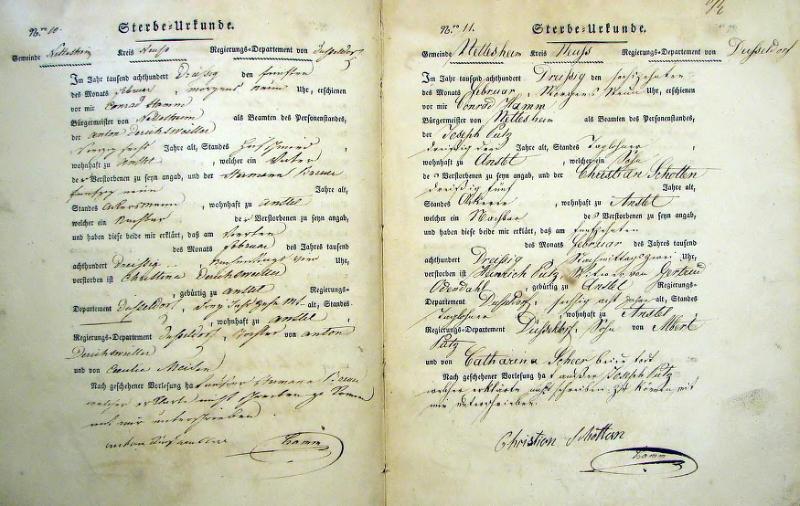 Nro 10.
Sterbe-Urkunde.
Gemeinde Nettesheim Kreis Neuss Regierungs-Departement von Düsseldorf
Im Jahr tausend achthundert Dreissig den fünften
des Monats Februar, morgens neun Uhr, erschienen
vor mir Conrad Hamm
Bürgermeister von Nettesheim als Beamten des Personenstandes,
der Anton Derichsweiler
Jahre alt, Standes
wohnhaft zu Anstel, welcher ein Vater
de Verstorbenen zu seyn angab, und der Hermann
fünfzig neun Jahre alt,
Standes Ackersmann, wohnhaft zu Anstel
welcher ein Nachbar de Verstorbenen zu seyn angab,
und haben diese beide mir erklärt, daß am vierten
des Monats Februar des Jahres tausend
achthundert Dreissig, Uhr,
verstorben ist Christina Derichsweiler
, gebürtig zu Anstel Regierungs-
Departement Düsseldorf, alt, Standes
, wohnhaft zu Anstel
Regierungs-Departement Düsseldorf, Tochter von Anton
Derichsweiler
und von Cecilia
Nach geschehener Vorlesung hat Hermann
welcher erklärte nicht schreiben zu können
mit mir unterschrieben.
Hamm
Nro 11.
Sterbe-Urkunde.
Gemeinde Nettesheim Kreis Neuss Regierungs-Departement von Düsseldorf
Im Jahr tausend achthundert Dreissig den sechszehnten
des Monats Februar, Morgens Neun Uhr, erschienen
vor mir Conrad Hamm
Bürgermeister von Nettesheim als Beamten des Personenstandes,
der Joseph Pütz
dreißig drei Jahre alt, Standes Taglohner
wohnhaft zu Anstel, welcher ein Sohn
de s Verstorbenen zu seyn angab, und der Christian Schotten
dreißig fünf Jahre alt,
Standes Ackerer, wohnhaft zu Anstel
welcher ein Nachbar de s Verstorbenen zu seyn angab,
und haben diese beide mir erklärt, daß am fünfzehnten
des Monats Februar des Jahres tausend
achthundert Dreissig Nachmittags zwei Uhr,
verstorben ist Heinrich Pütz Witwer von Gertrud
Odendahl gebürtig zu Anstel Regierungs-
Departement Düsseldorf, sechszig acht Jahre alt, Standes
Taglohner, wohnhaft zu Anstel
Regierungs-Departement Düsseldorf, Sohn von Albert
Pütz
und von Catharina Scheer beide todt
Nach geschehener Vorlesung hat außer Joseph Pütz
welcher erklärte nicht schreiben zu können mit
mir unterschrieben.
Christian Schottan
Hamm